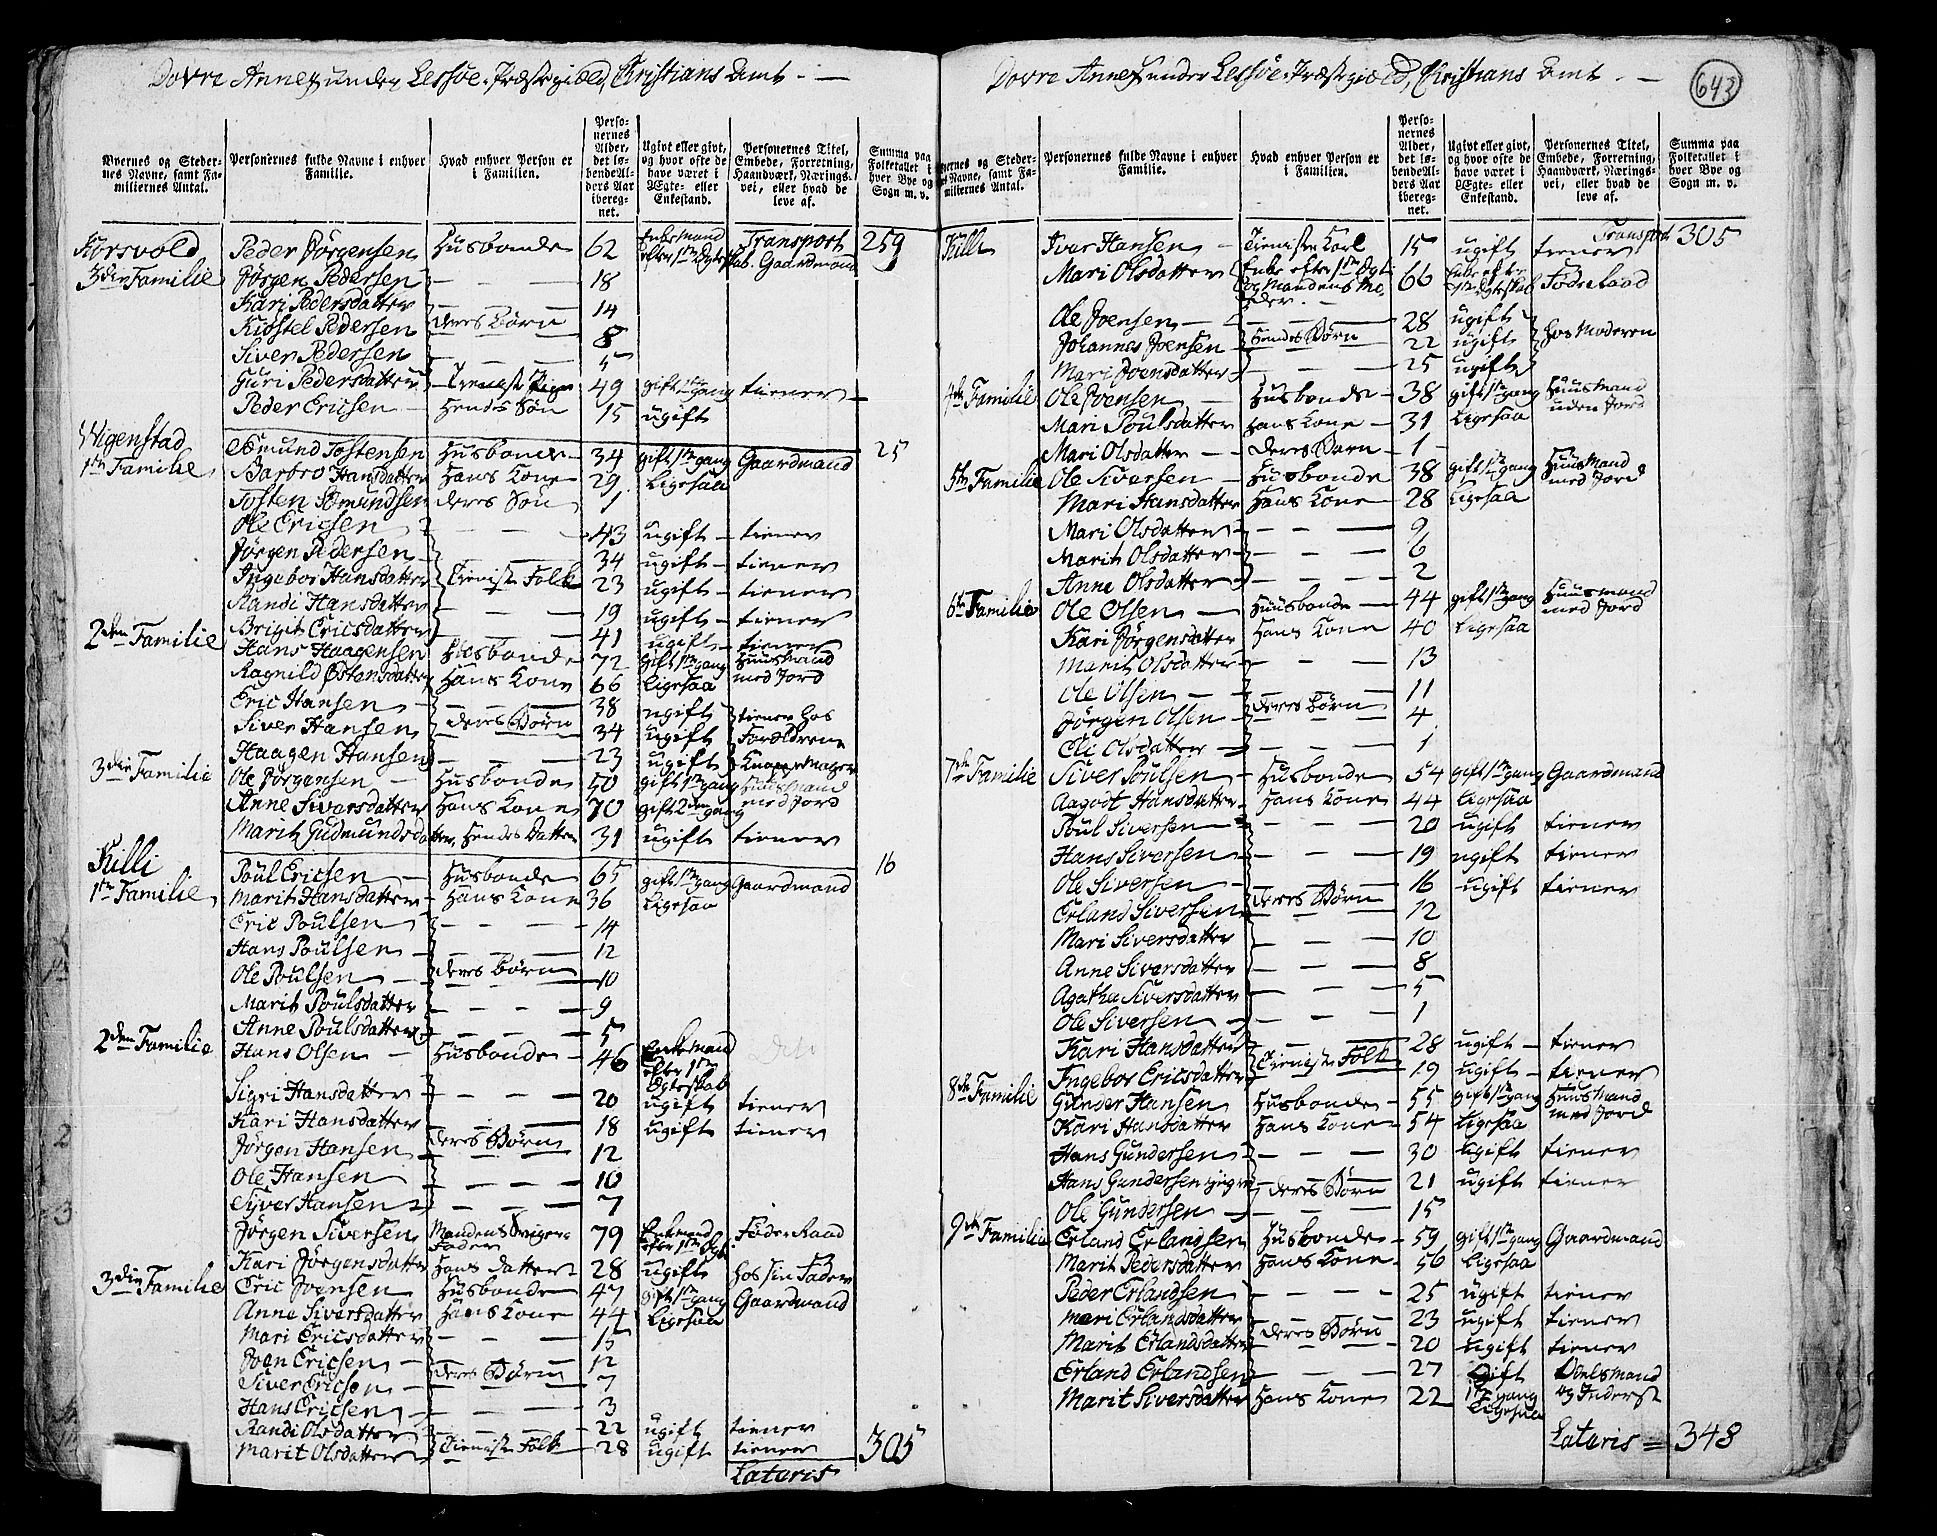 Dovre Annex under Lessøe Præstegield, Christians Amt
Byernes og Stedernes Navne, samt Familiernes Antal.
Personernes fulde Navne i enhver Familie.
Hvad enhver Person er i Familien.
Personernes Alder, det løbende Alders Aar iberegnet.
Ugivt eller givt, og hvor ofte de have været i Ægte- eller Enkestand.
Personernes Titel, Embede, Forretning, Haandværk, Næringsvei, eller hvad de leve af.
Summa paa Folketallet i hver Bye og Sogn m. v.
Transport 259
Forsvold
3die Familie Peder Jørgensen Husbonde 62 Enkemand efter 1ste Ægteskab. Gaardmand
Jørgen Pedersen 18
Kari Pedersdatter 14
Kiøstel Pedersen deres Børn 8
Siver Pedersen 5
Guri Pedersdatter Tieneste Pige 49 gift 1ste gang tiener
Peder Ericsen hendes Søn 15 ugift
Wigenstad 25
1ste Familie Amund Tostensen Husbonde 34 gift 1ste gang Gaardmand
Barbro Hansdatter Hans Kone 29 Ligesaa
Tosten Amundsen deres Søn 1
Ole Ericsen 43 ugift tiener
Jørgen Pedersen 34 ugift tiener
Ingebor Hansdatter Tieniste Folk 23 ugift tiener
Randi Hansdatter 19 ugift tiener
Brigit Ericsdatter 41 ugift tiener
2den Familie Hans Haagensen Husbonde 72 gift 1ste gang Huusmand med Jord
Ragnild Østensdatter Hans Kone 66 Ligesaa
Eric Hansen 38 ugift
Siver Hansen deres Børn 34 ugift tiener hos Forældrene
Haagen Hansen 23 ugift
3die Familie Ole Jørgensen Husbonde 50 gift 1ste gang Knappemager Huusmand med Jord
Anne Siversdatter Hans Kone 70 gift 2den gang
Marit Gudmundsdatter, Hendes Datter 31 ugift tiener
Killi 16
1ste Familie Poul Ericsen Husbonde 65 gift 1ste gang Gaardmand
Marit Hansdatter Hans Kone 36 Ligesaa
Eric Poulsen 14
Hans Poulsen 12
Ole Poulsen deres Børn 10
Marit Poulsdatter 9
Anne Poulsdatter 5
2den Familie Hans Olsen Husbonde 46 Enkemand efter 1ste Ægteskab
Sigri Hansdatter 20 ugift tiener
Kari Hansdatter 18 ugift tiener
Jørgen Hansen deres Børn 12
Ole Hansen 10
Syver Hansen 7
Jørgen Siversen Mandens Sviger Fader 79 Enkemand efter 1ste Ægt. Føderaad
Kari Jørgensdatter Hans datter 28 ugift hos sin Fader
3die Familie Eric Joensen Husbonde 47 gift 1ste gang Gaardmand
Anne Siversdatter Hans Kone 44 Ligesaa
Mari Ericsdatter 15
Joen Ericsen 12
Siver Ericsen deres Børn 7
Hans Ericsen 3
Randi Olsdatter 22 ugift tiener
Marit Olsdatter Tieniste Folk 28 ugift tiener
Lateris 305
Dovre Annex under Lessøe Præstegield, Christians Amt
643
Byernes og Stedernes Navne, samt Familiernes Antal.
Personernes fulde Navne i enhver Familie.
Hvad enhver Person er i Familien.
Personernes Alder, det løbende Alders Aar iberegnet.
Ugivt eller givt, og hvor ofte de have været i Ægte- eller Enkestand.
Personernes Titel, Embede, Forretning, Haandværk, Næringsvei, eller hvad de leve af.
Summa paa Folketallet i hver Bye og Sogn m. v.
Transport 305
Killi Ivar Hansen Tieniste Karl 15 ugift tiener
Mari Olsdatter Enke efter 1ste Ægt. og Mandens Moder 66 Enke efter 1ste Ægteskab Føderaad
Ole Joensen 28 ugift
Johannes Joensen hendes Børn 22 ugift hos Moderen
Mari Joensdatter 25 ugift
4de Familie Ole Joensen Husbonde 38 gift 1ste gang Huusmand uden Jord
Mari Poulsdatter hans Kone 31 Ligesaa
Mari Olsdatter deres Barn 1
5te Familie Ole Siversen Husbonde 38 gift 1ste gang Huusmand med Jord
Mari Hansdatter Hans Kone 28 Ligesaa
Mari Olsdatter 9
Marit Olsdatter 6
Anne Olsdatter 2
6te Familie Ole Olsen Husbonde 44 gift 1ste gang Huusmand med Jord
Kari Jørgensdatter Hans Kone 40 Ligesaa
Marit Olsdatter 13
Ole Olsen 11
Jørgen Olsen deres Børn 4
Eli Olsdatter 1
7de Familie Siver Poulsen Husbonde 54 gift 1ste gang Gaardmand
Aagodt Hansdatter Hans Kone 44 Ligesaa
Poul Siversen 20 ugift tiener
Hans Siversen 19 ugift tiener
Ole Siversen 16 ugift tiener
Erland Siversen deres Børn 12
Mari Siversdatter 10
Anne Siversdatter 8
Agatha Siversdatter 5
Ole Siversen 1
Kari Hansdatter 28 ugift tiener
Ingebor Ericsdatter Tieniste Folk 19 ugift tiener
8de Familie Gunder Hansen Husbonde 55 gift 1ste gang Huusmand med Jord
Kari Hansdatter Hans Kone 54 Ligesaa
Hans Gundersen 30 ugift tiener
Hans Gundersen yngre deres Børn 21 ugift tiener
Ole Gundersen 15
9de Familie Erland Erlandsen Husbonde 59 gift 1ste gang Gaardmand
Marit Pedersdatter Hans Kone 56 Ligesaa
Peder Erlandsen 25 ugift tiener
Mari Erlandsdatter 23 ugift tiener
Marit Erlandsdatter deres Børn 20 ugift tiener
Erland Erlandsen 27 Gift 1ste gang Odelsmand og Inderst
Marit Siversdatter Hans Kone 22 Ligesaa
Lateris = 348